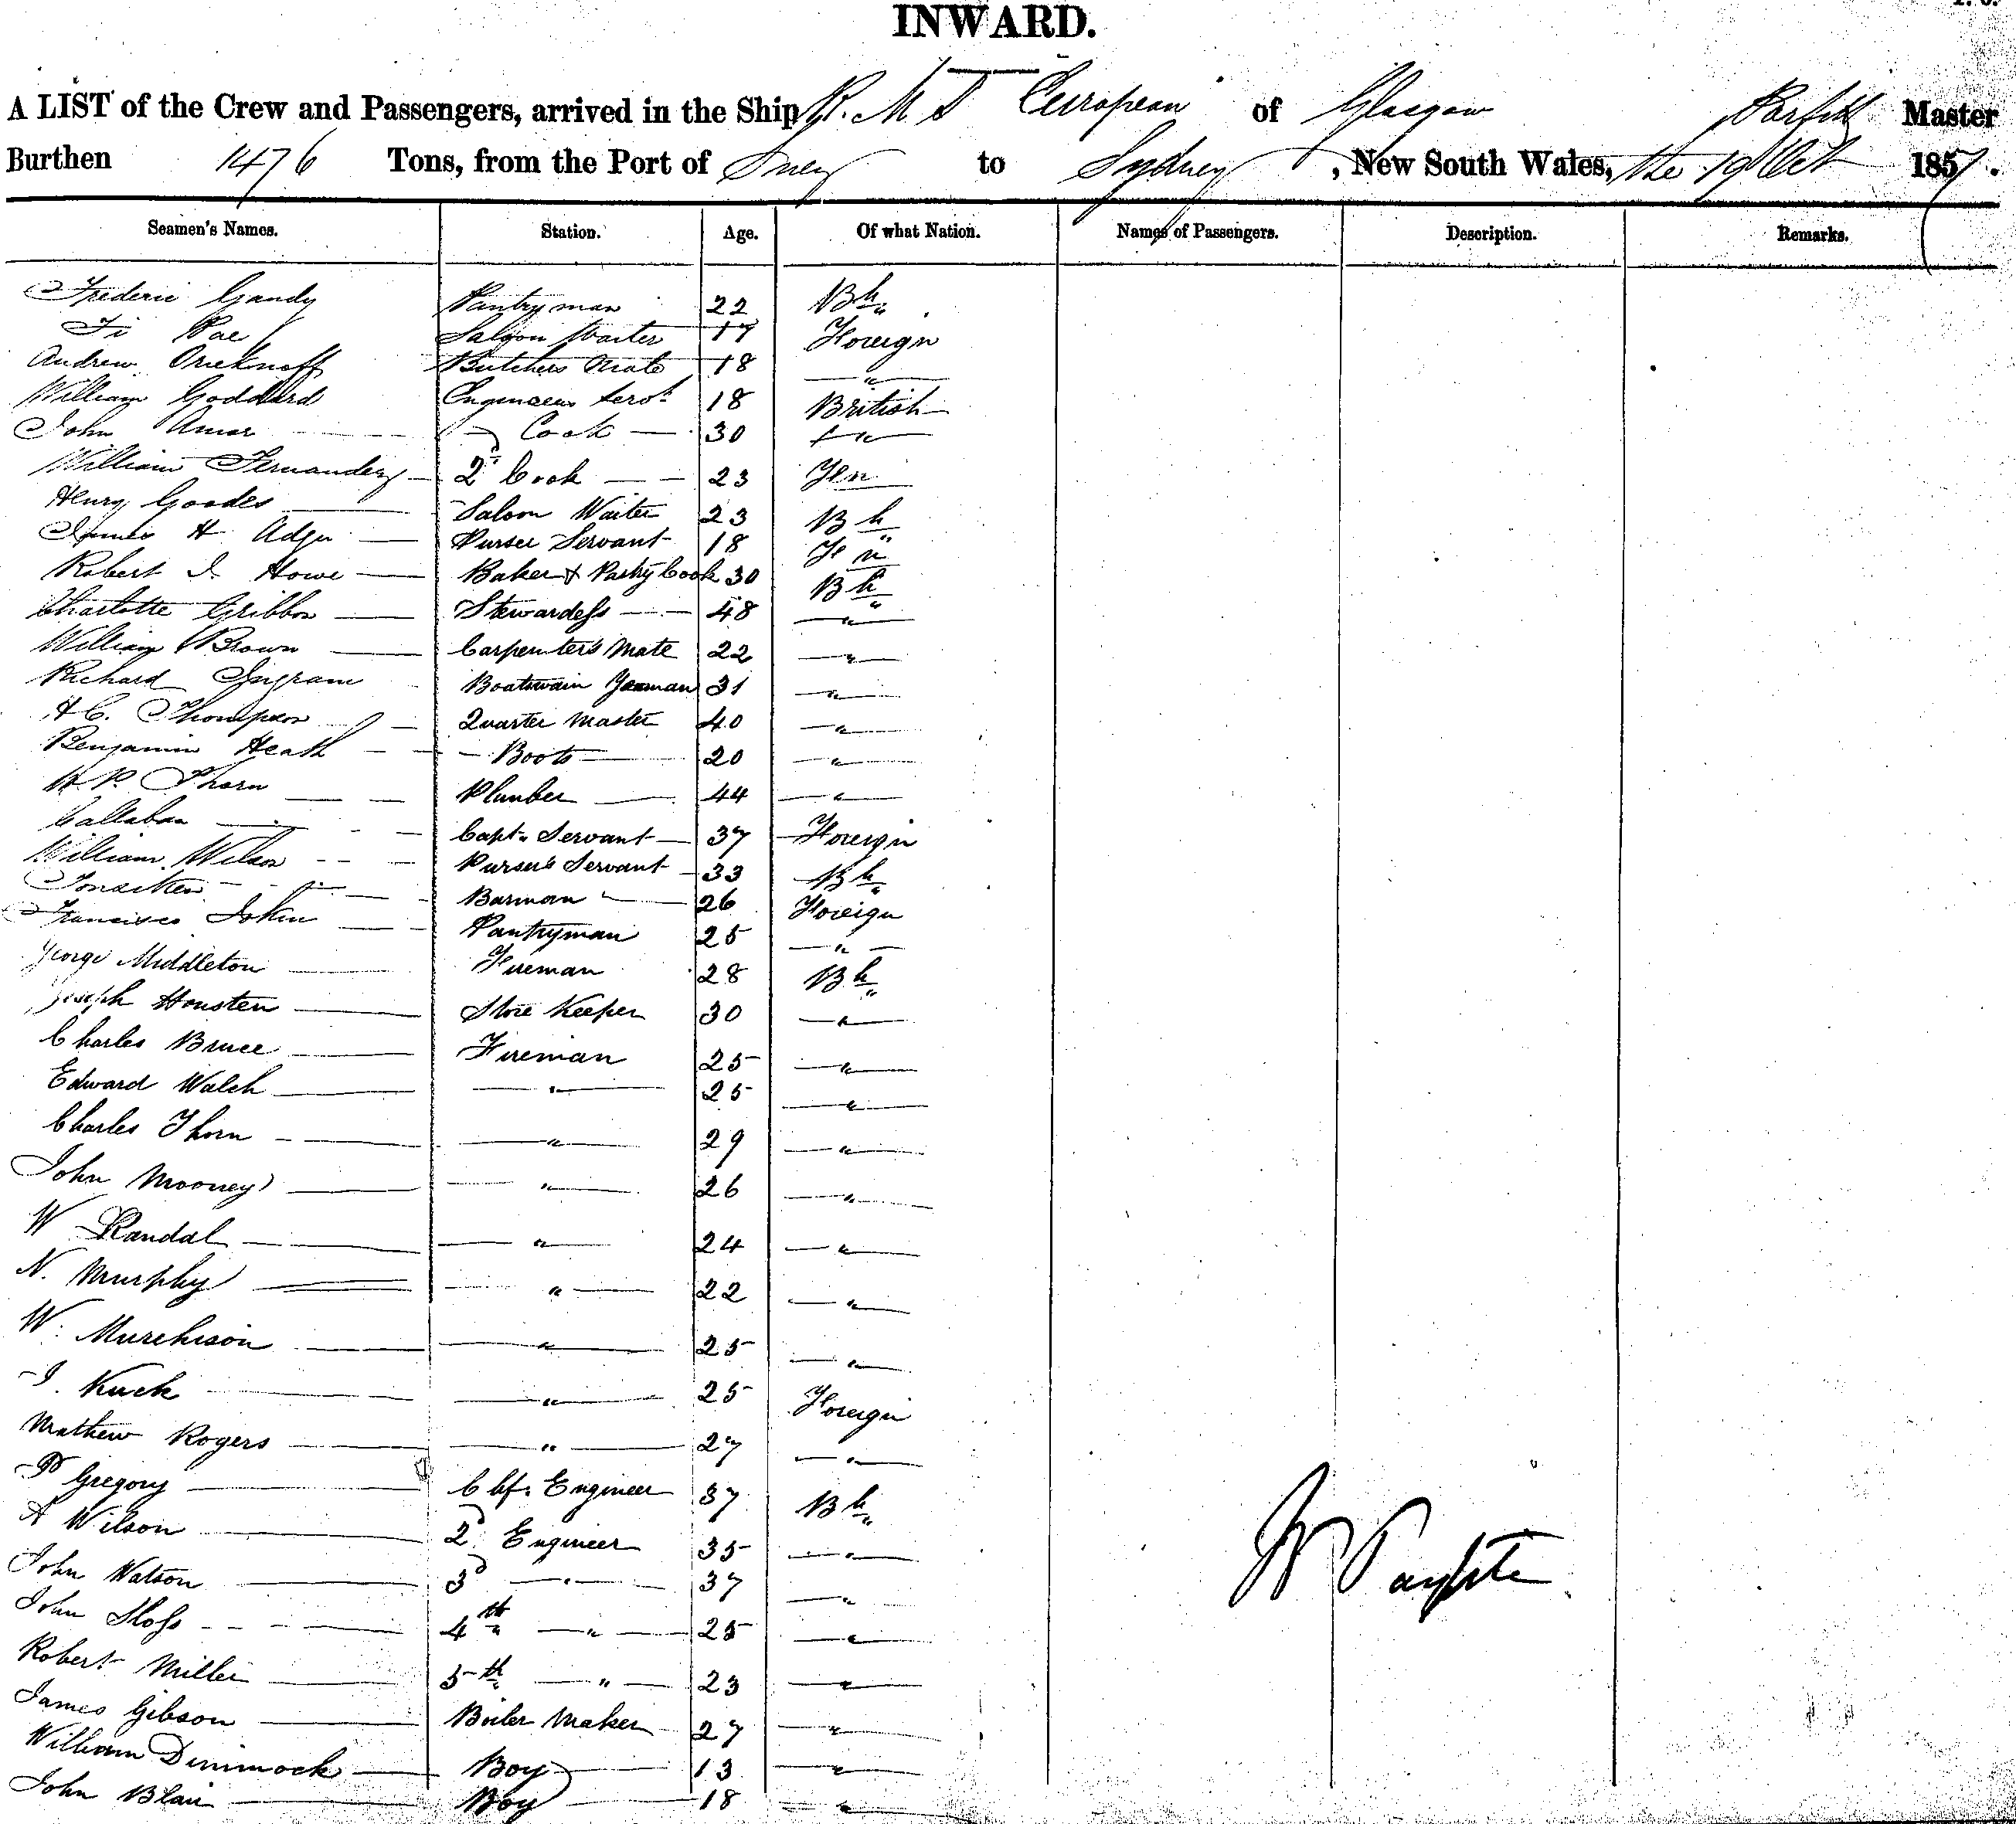 INWARD.
A LIST of the Crew and Passengers, arrived in the Ship R. M. S European of Glasgow Parfitt Master
Burthen 1476 Tons, from the Port of Suez to Sydney, New South Wales, the 19 Oct 1857.
Seamen's Names. Station. Age. Of what Nation. Names of Passengers. Description. Remarks.
Frederic Gandy Pantryman 22 Bh
Pae Saloon Waiter 17 Foreign
Andrew Butchers Mate 18 "
William Goddard Engineers Servt 18 British
John Cook 30 "
William Fernandez 2d Cook 23 Fn
Henry Goodes Saloon Waiter 23 Bh
James H Purser Servant 18 Fn
Robert I. Howe Baker & Pastry Cook 30 Bh
Charlotte Gribbon Stewardess 48 "
William Brown Carpenter's Mate 22 "
Richard Ingram Boatswain Yeoman 31 "
H C. Thompson Quarter Master 40 "
Benjamin Heath Boots 20 "
Thorn Plumber 44 "
Callaban Captn Servant 37 Foreign
William Wilson Purser's Servant 33 Bh
Barman 26 Foreign
Francisco John Pantryman 25 "
George Middleton Fireman 28 Bh
Joseph Housten Store Keeper 30 "
Charles Bruce Fireman 25 "
Edward Walch " 25 "
Charles Thorn " 29 "
John Mooney " 26 "
W Randal " 24 "
N. Murphy " 22 "
W. Murchison " 25 "
I. Kuck " 25 Foreign
Mathew Rogers " 27 "
P Gregory Chf. Engineer 37 Bh
A Wilson 2d Engineer 35 "
John Watson 3d " 37 "
John Sloss 4th " 25 "
Robert Miller 5th " 23 "
James Gibson Boiler Maker 27 "
William Dimmock Boy 13 "
John Blair Boy 18 "